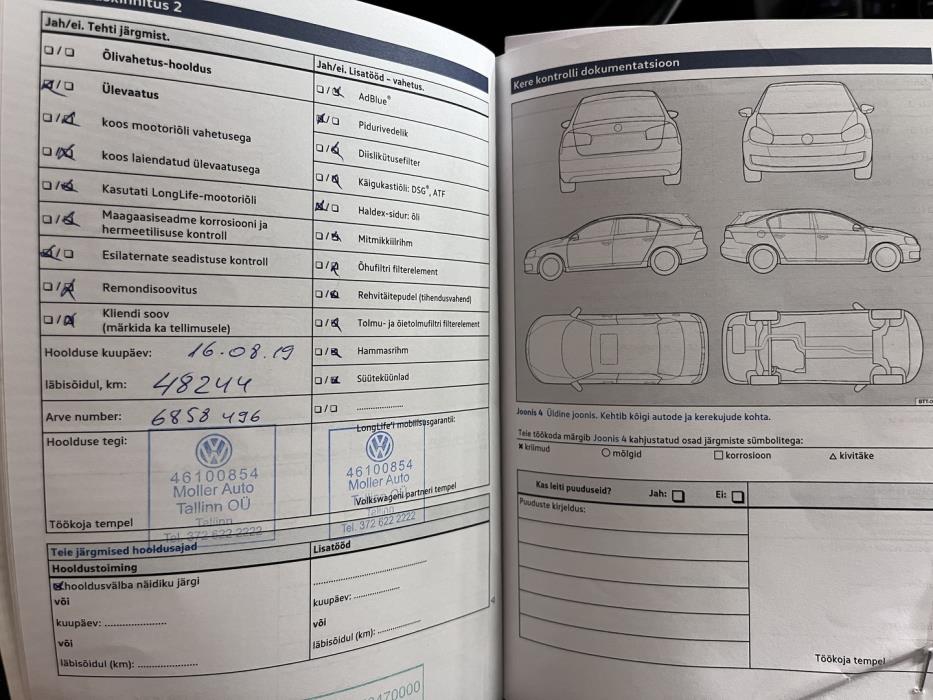 nitus 2
Jah/ei. Tehti järgmist.
☐/☐ Õlivahetus-hooldus
☒/☐ Ülevaatus
☐/☒ koos mootoriõli vahetusega
☐/☒ koos laiendatud ülevaatusega
☐/☒ Kasutati LongLife-mootoriõli
☐/☒ Maagaasiseadme korrosiooni ja
hermeetilisuse kontroll
☒/☐ Esilaternate seadistuse kontroll
☐/☒ Remondisoovitus
☐/☒ Kliendi soov
(märkida ka tellimusele)
Hoolduse kuupäev: 16.08.19
läbisõidul, km: 48244
Arve number: 6858496
Hoolduse tegi:
46100854
Moller Auto
Tallinn OÜ
Tallinn
Tel. 372 622 2222
Töökoja tempel
Jah/ei. Lisatööd – vahetus.
☐/☒ AdBlue®
☒/☐ Pidurivedelik
☐/☒ Diislikütusefilter
☐/☒ Käigukastiõli: DSG®, ATF
☒/☐ Haldex-sidur: õli
☐/☒ Mitmikkiilrihm
☐/☒ Õhufiltri filterelement
☐/☒ Rehvitäitepudel (tihendusvahend)
☐/☒ Tolmu- ja õietolmufiltri filterelement
☐/☒ Hammasrihm
☐/☒ Süüteküünlad
☐/☐ ....................
LongLife'i mobiilsusgarantii:
46100854
Moller Auto
Tallinn OÜ
Tel. 372 622 2222
Volkswageni partneri tempel
Teie järgmised hooldusajad
Hooldustoiming
☒ hooldusvälba näidiku järgi
või
kuupäev: ....................
või
läbisõidul (km): ....................
Lisatööd
....................
kuupäev: ....................
või
läbisõidul (km): ....................
470000
Kere kontrolli dokumentatsioon
Joonis 4 Üldine joonis. Kehtib kõigi autode ja kerekujude kohta.
Teie töökoda märgib Joonis 4 kahjustatud osad järgmiste sümbolitega:
× kriimud ○ mõlgid □ korrosioon △ kivitäke
Kas leiti puuduseid? Jah: ☐ Ei: ☐
Puuduste kirjeldus:
Töökoja tempel